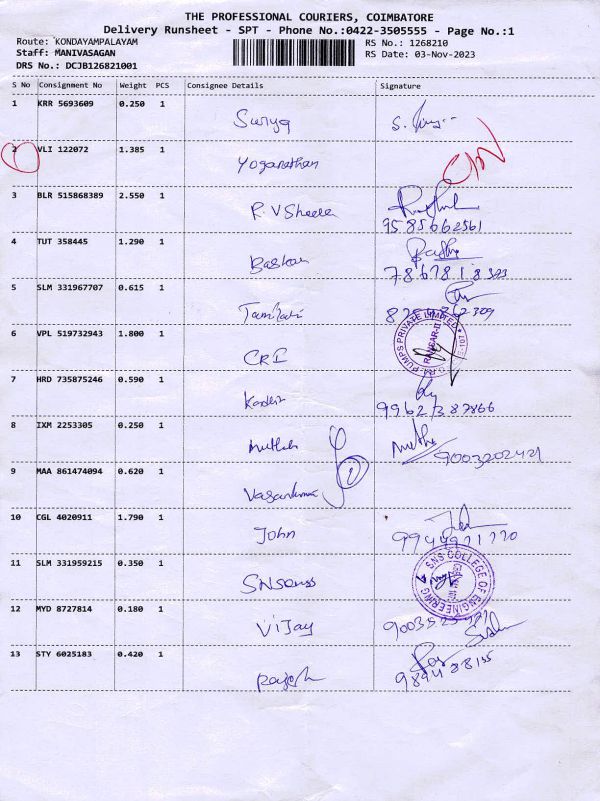 THE PROFESSIONAL COURIERS, COIMBATORE
Delivery Runsheet - SPT - Phone No.:0422-3505555 - Page No.:1
Route: KONDAYAMPALAYAM
Staff: MANIVASAGAN
DRS No.: DCJB126821001
RS No.: 1268210
RS Date: 03-Nov-2023
S No Consignment No Weight PCS Consignee Details Signature
1 KRR 5693609 0.250 1 Surya S.
2 VLI 122072 1.385 1 Yoganathan
3 BLR 515868389 2.550 1 R.V Sheela
9585662561
4 TUT 358445 1.290 1 Baskar
5 SLM 331967707 0.615 1
6 VPL 519732943 1.800 1 CRI
PUMPS PRIVATE LIMITED
7 HRD 735875246 0.590 1
9962387866
8 IXM 2253305 0.250 1 Muthu
9003202421
9 MAA 861474094 0.620 1
10 CGL 4020911 1.790 1 John
9944971770
11 SLM 331959215 0.350 1
SNS COLLEGE OF ENGINEERING
12 MYD 8727814 0.180 1 Vijay
13 STY 6025183 0.420 1 Rajesh